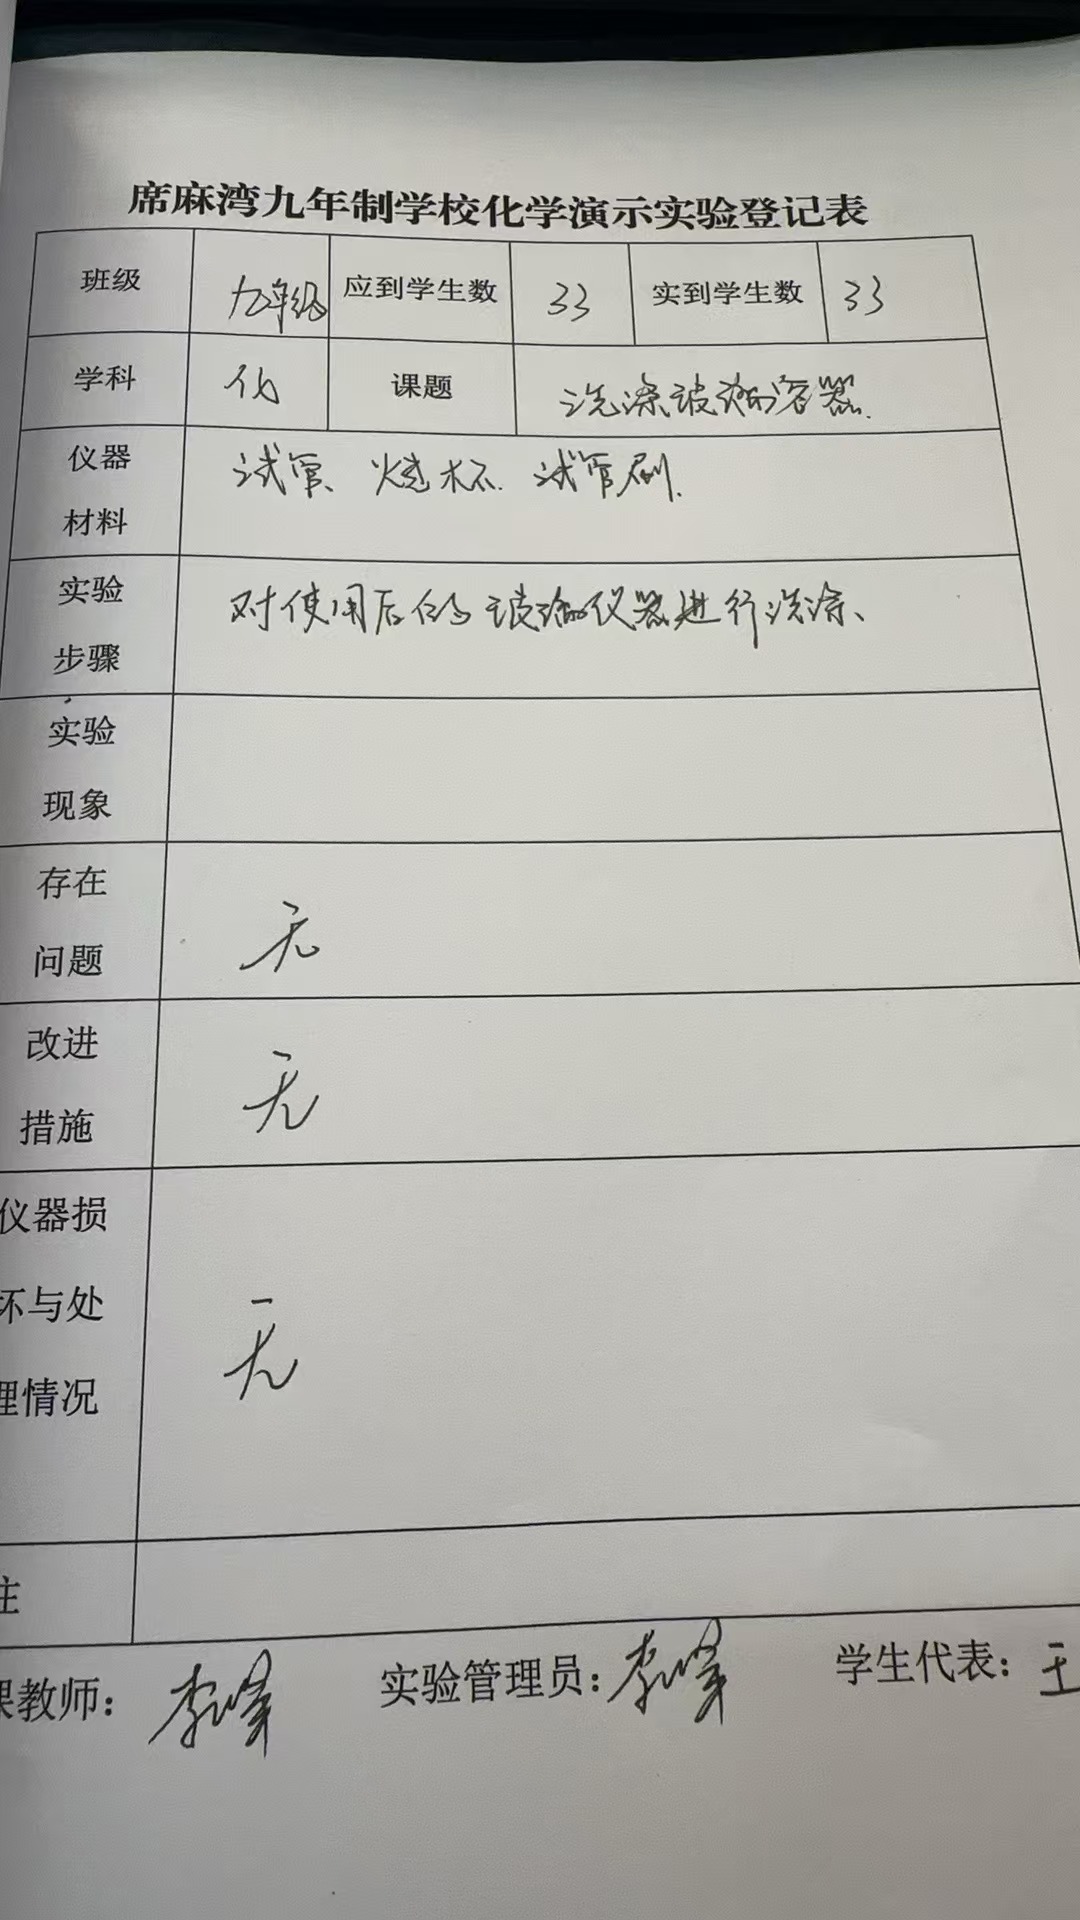 席麻湾九年制学校化学演示实验登记表
班级 九年级 应到学生数 33 实到学生数 33
学科 化 课题 洗涤玻璃容器.
仪器
材料
试管、烧杯. 试管刷.
实验
步骤
对使用后的玻璃仪器进行洗涤、
实验
现象
存在
问题
无
改进
措施
无
仪器损
坏与处
理情况
无
注
课教师： 李峰 实验管理员：李峰 学生代表：王